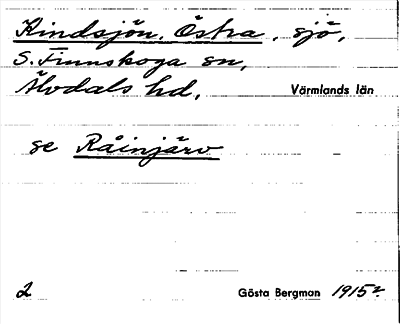 Kindsjön, Östra, sjö,
S. Finnskoga sn,
Älvdals hd, Värmlands län
se Råinjärv
2 Gösta Bergman 1915